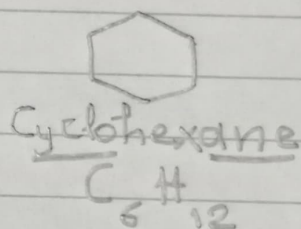 Cyclohexane
C6H12